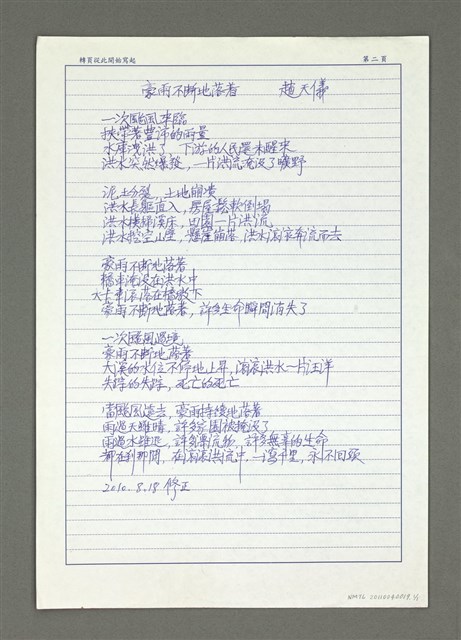 轉頁從此開始寫起
第二頁
豪雨不斷地落着 趙天儀
一次颱風來臨
挾帶著豐沛的雨量
水庫洩洪了，下游的人民還未醒來
洪水突然爆發，一片洪流淹沒了曠野
泥土分裂，土地崩潰
洪水長驅直入，房屋鬆軟倒塌
洪水橫掃溪床，田園一片洪流
洪水挖空山壁，懸崖崩落，洪水滾滾奔流而去
豪雨不斷地落著
橋車淹沒在洪水中
大卡車滾落在橋墩下
豪雨不斷地落著，許多生命瞬間消失了
一次颱風過境
豪雨不斷地落著
大溪的水位不停地上昇，滾滾洪水一片汪洋
失踪的失踪，死亡的死亡
當颱風遠去，豪雨持續地落著
雨過天雖晴，許多家園被掩沒了
雨過水雖退，許多無辜的生命
都在剎那間，在滾滾洪流中，一瀉千里，永不回頭
2010.8.18 修正